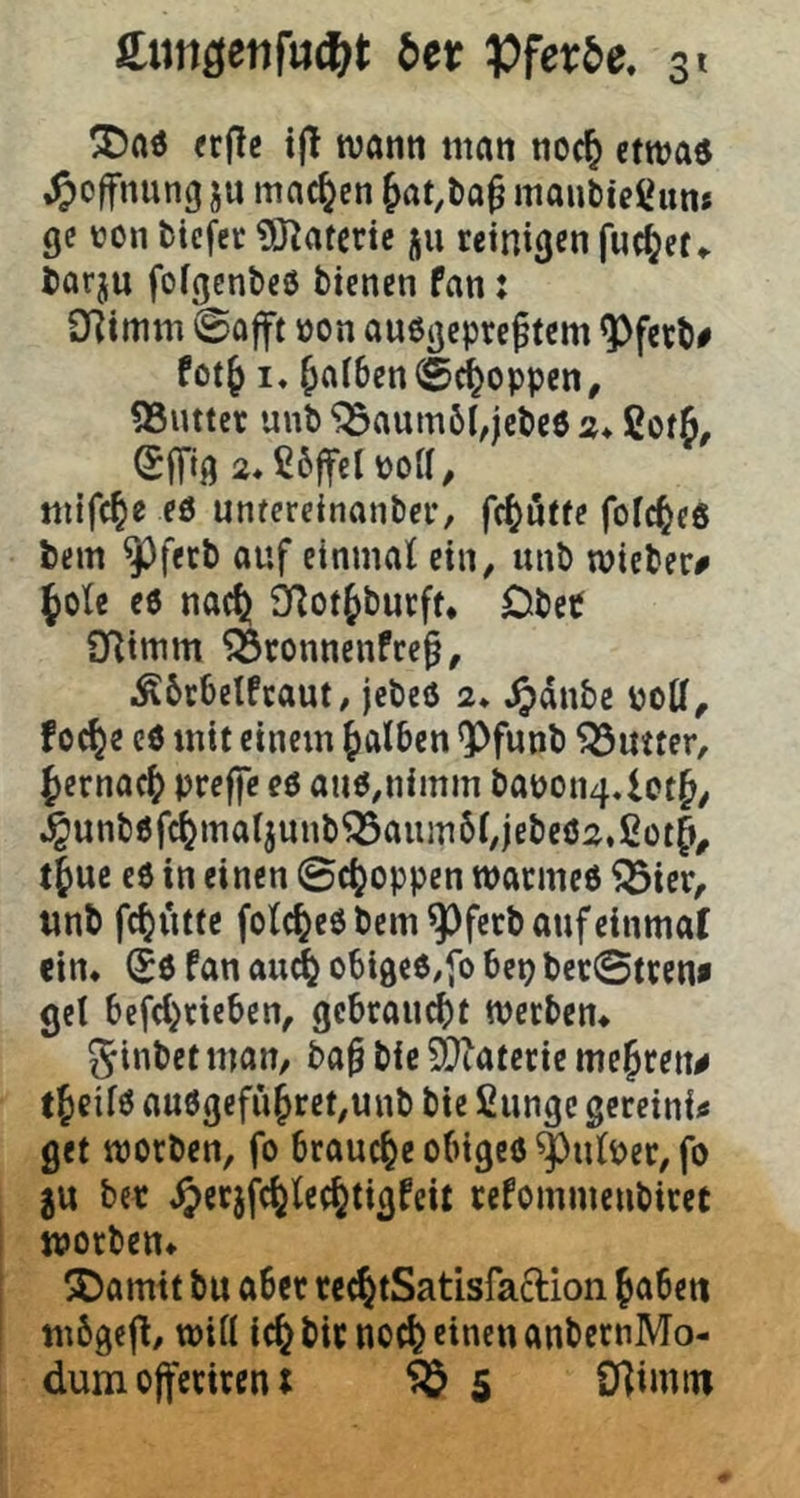 Lungensucht der Pferde. 31
Das erste ist wann man noch etwas
Hoffnung zu machen hat, daß man die Lun-
ge von dieser Materie zu reinigen suchet.
darzu folgendes dienen kan:
Nimm Safft von ausgepreßtem Pferd-
koth 1. halben Schoppen,
Butter und Baumöl, jedes 2. Loth,
Essig 2. Löffel voll,
mische es untereinander, schütte solches
dem Pferd auf einmal ein, und wieder-
hole es nach Nothdurft. Oder
Nimm Bronnenkreß,
Körbelkraut, jedes 2. Händde voll,
koche es mit einem halben Pfund Butter,
hernach presse es aus, nimm davon 4. Loth,
Hundsschmalz und Baumöl, jedes 2. Loth,
thue es in einen Schoppen warmes Bier,
und schütte solches dem Pferd auf einmal
ein. Es kan auch obiges, so bey der Stren-
gel beschrieben, gebraucht werden.
Findet man, daß die Materie mehren-
theils ausgeführet, und die Lunge gereini-
get worden, so brauche obiges Pulver, so
zu der Herzschlechtigkeit rekommendiret
worden.
Damit du aber recht Satisfaction haben
mögest, will ich dir noch einen andern Mo-
dum offeriren: B 5 Nimm